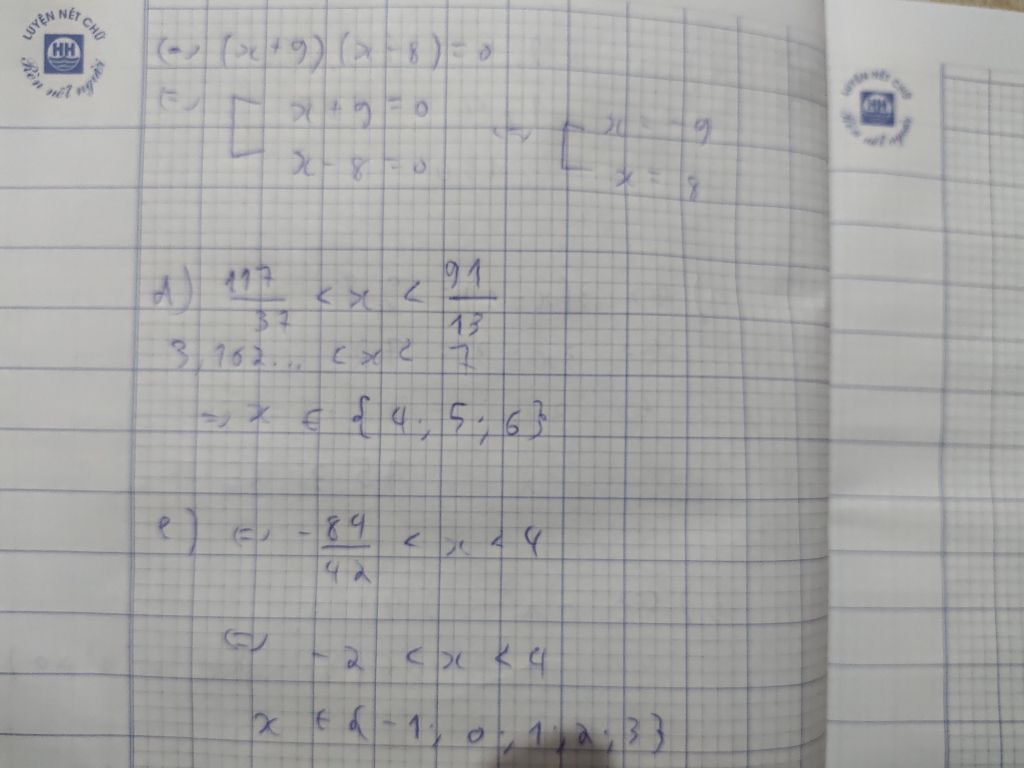 LUYỆN NẾT CHỮ
HH
Rèn nết người
(=) (x + 9) (x - 8) = 0
(=) [ x + 9 = 0
x - 8 = 0
(=) [ x = -9
x = 8
d) 117/37 < x < 91/13
3,162... < x < 7
=> x ∈ {4; 5; 6}
e) (=) -84/42 < x < 4
(=) -2 < x < 4
x ∈ {-1; 0; 1; 2; 3}
LUYỆN NẾT CHỮ
HH
Rèn nết người